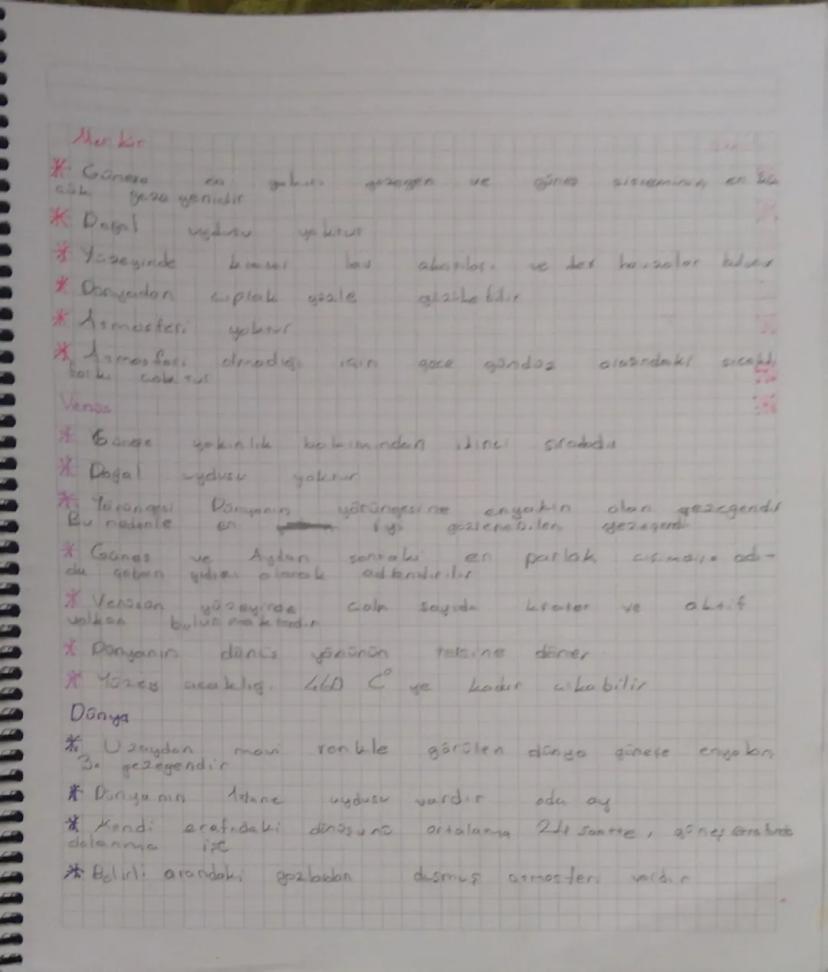 Merkür
* Güneşe en yakın gezegen ve güneş sisteminin en kü
çük gezegenidir
* Doğal uydusu yoktur
* Yüzeyinde lav akıntıları ve
* Dünyadan çıplak gözle
* Atmosferi yoktur
* Atmosferi olmadığı için gece gündüz arasındaki sıcaklık
farkı çoktur
Venüs
* Güneşe yakınlık bakımından ikinci sıradadır
* Doğal uydusu yoktur
* Yörüngesi Dünyanın yörüngesine enyakın olan gezegendir
Bu nedenle en iyi gözlenebilen gezegendir
* Güneş ve Aydan sonraki en parlak
çoban yıldızı olarak adlandırılır
* Venüsün yüzeyinde çok sayıda krater ve aktif
volkan bulunmaktadır
* Dünyanın dönüş yönünün tersine döner
* Yüzey sıcaklığı 460 C° ye kadar çıkabilir
Dünya
* Uzaydan mavi renkle görülen dünya güneşe enyakın
3. gezegendir
* Dünyanın 1 tane uydusu vardır oda ay
* Kendi etrafındaki ortalama 24 saatte, güneş etrafında
dolanma ise
* Belirli gazlardan atmosferi vardır